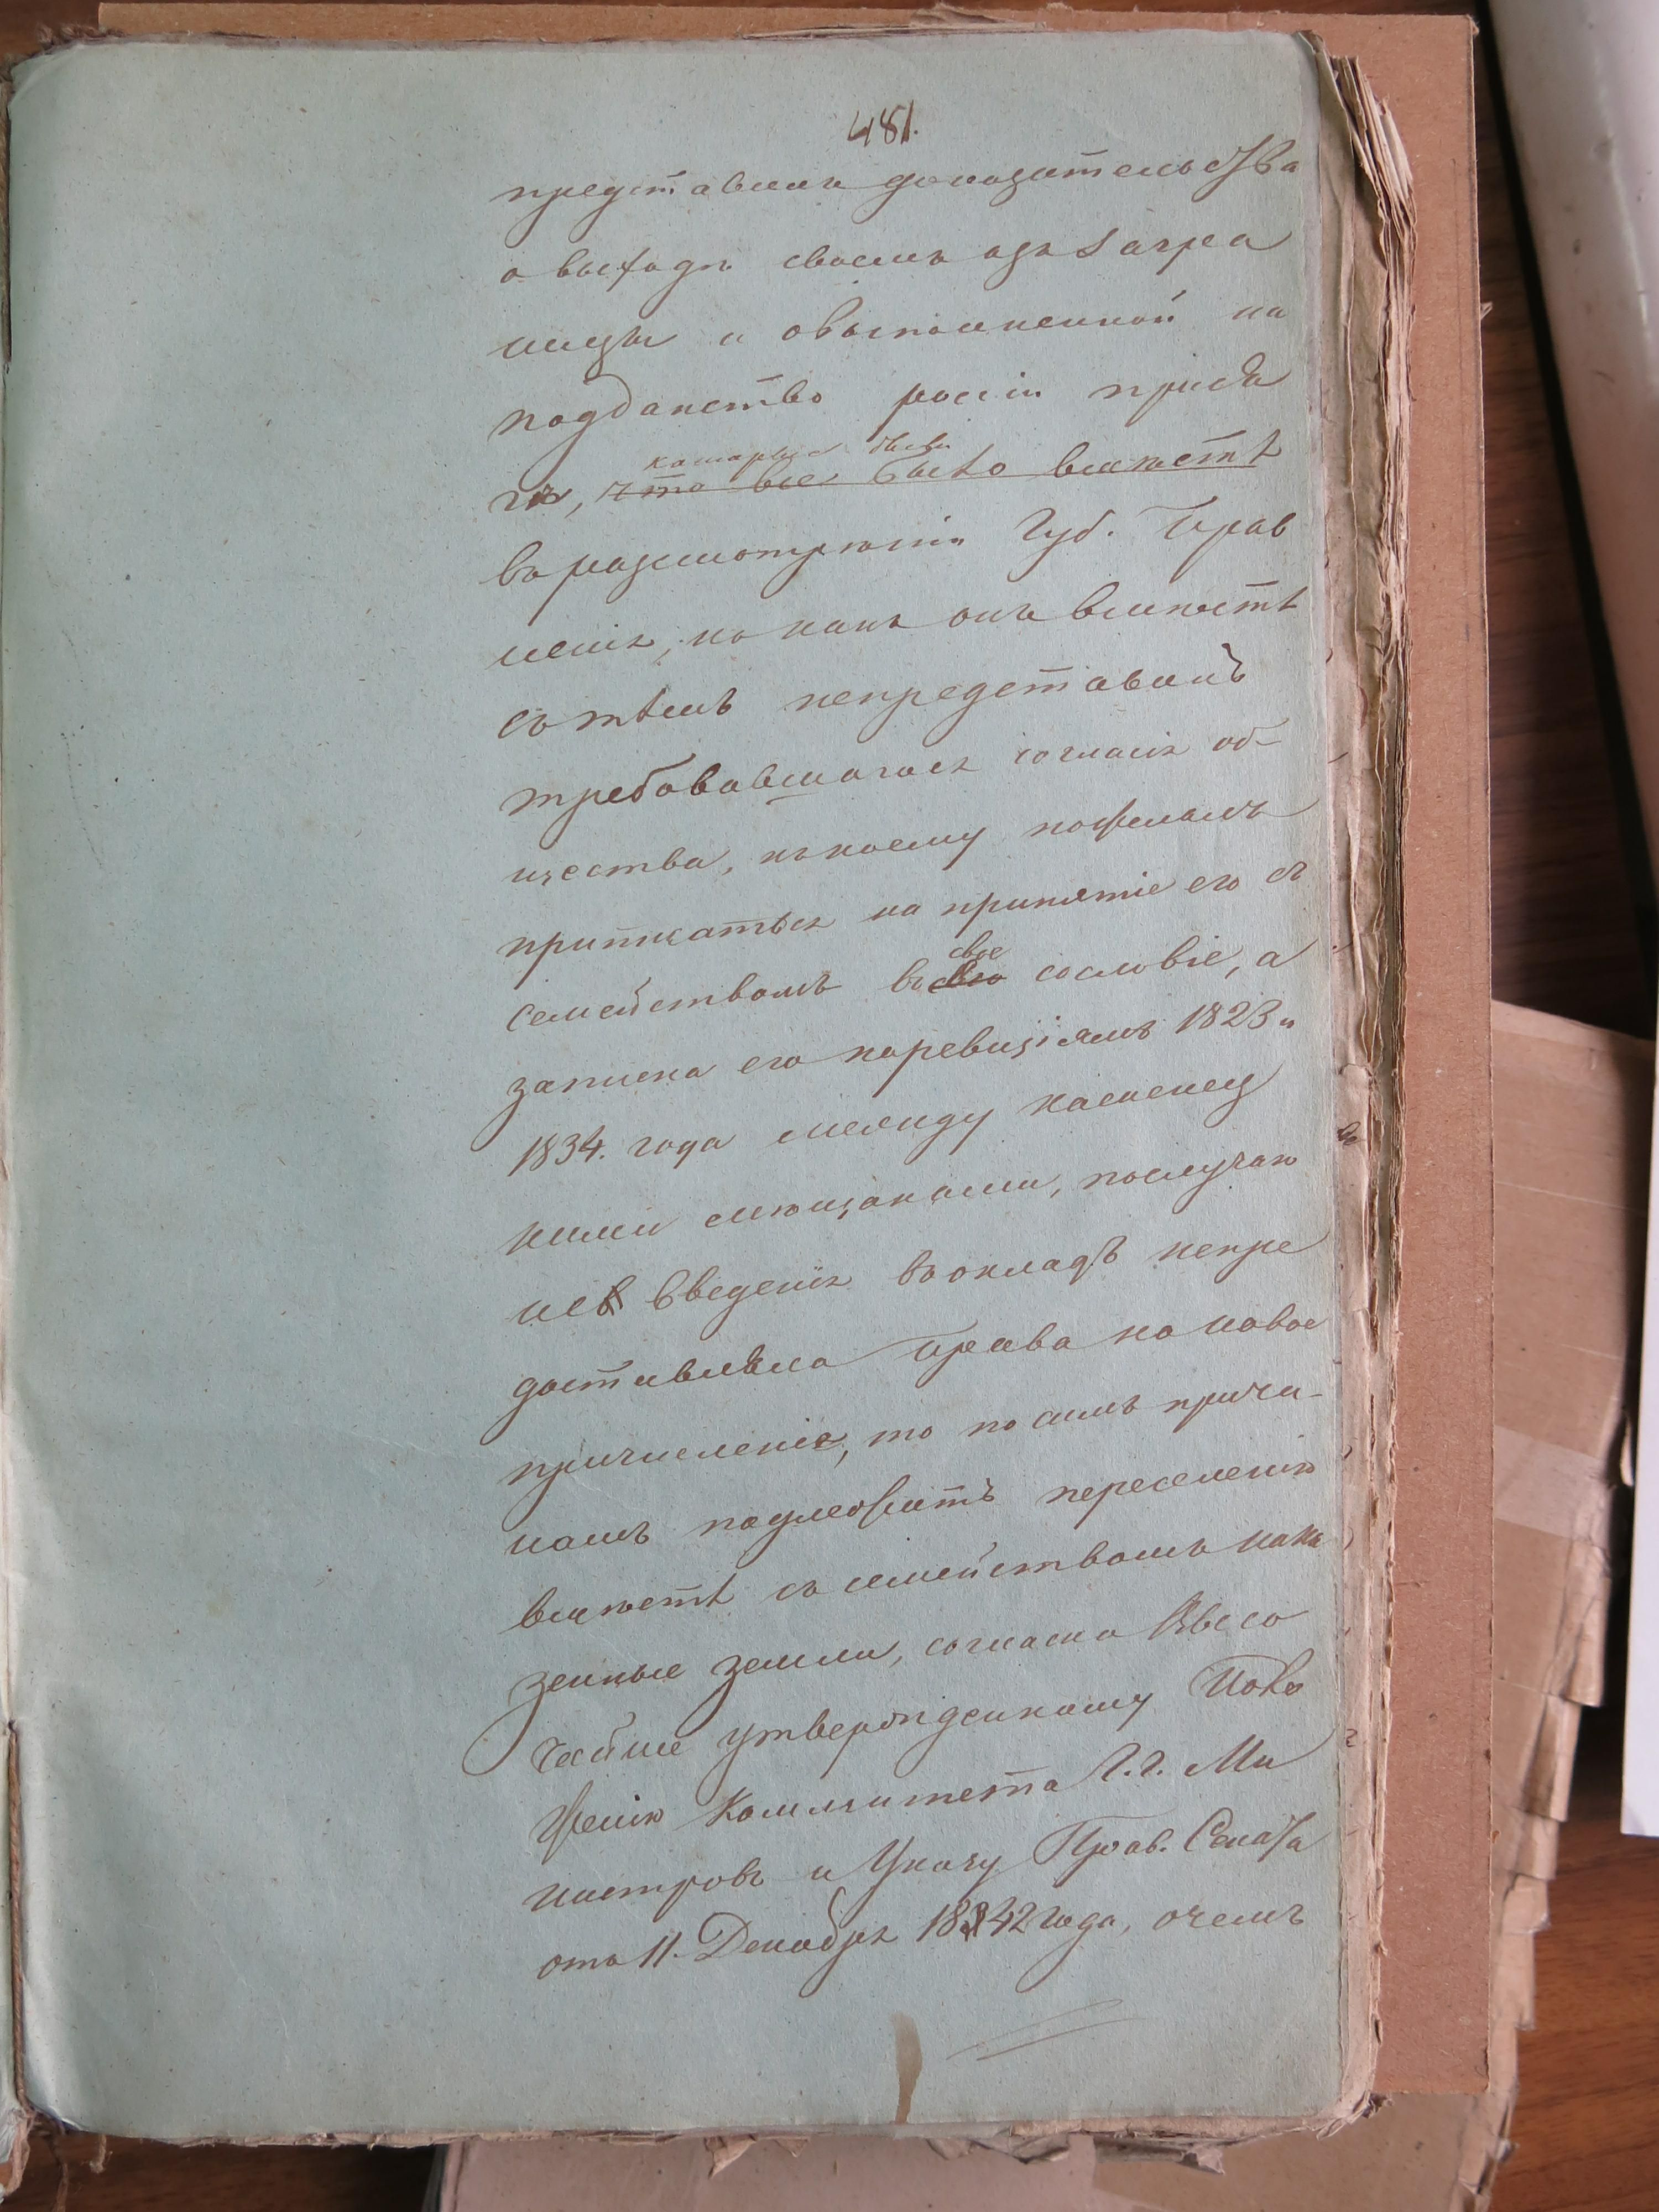 481.
представилъ доказательства
о выходѣ своемъ изъ загра
ницы и овыполненной на
подданство россіи прися
гѣ, что все было вмѣстѣ
которые были
въ разсмотрѣніи Губ. Прав
ленія, но какъ онъ вмѣстѣ
съ тѣмъ непредставилъ
требовавшагося согласія об-
щества, къ коему пожелалъ
приписаться на принятіе его съ
свое
семействомъ въ сословіе, а
записка его поревизіямъ 1823 и
1834. года между каменец
кими мѣщанами, послучаю
не введенія въ окладъ непре
доставляла права на новое
причисленіе, то по симъ причи-
намъ подлежитъ переселенію
вмѣстѣ съ семействомъ на ка
зенные земли, согласно Высо
чайше утвержденному Поло
женію Комитета Г.г. Ми
нистровъ и Указу Прав. Сената
отъ 11. Декабря 1842 года, о чемъ